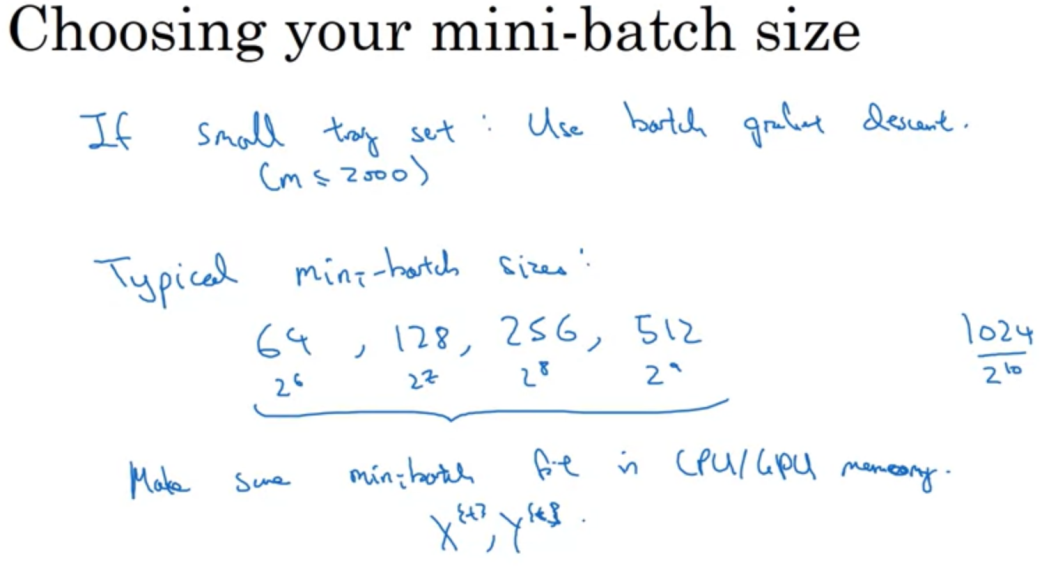 Choosing your mini-batch size
If small tray set : Use batch gradient descent.
(m ≤ 2000)
Typical mini-batch sizes:
64 , 128, 256, 512 1024
2⁶ 2⁷ 2⁸ 2⁹ 2¹⁰
Make sure mini-batch fit in CPU/GPU memory.
X^{t}, Y^{t}.